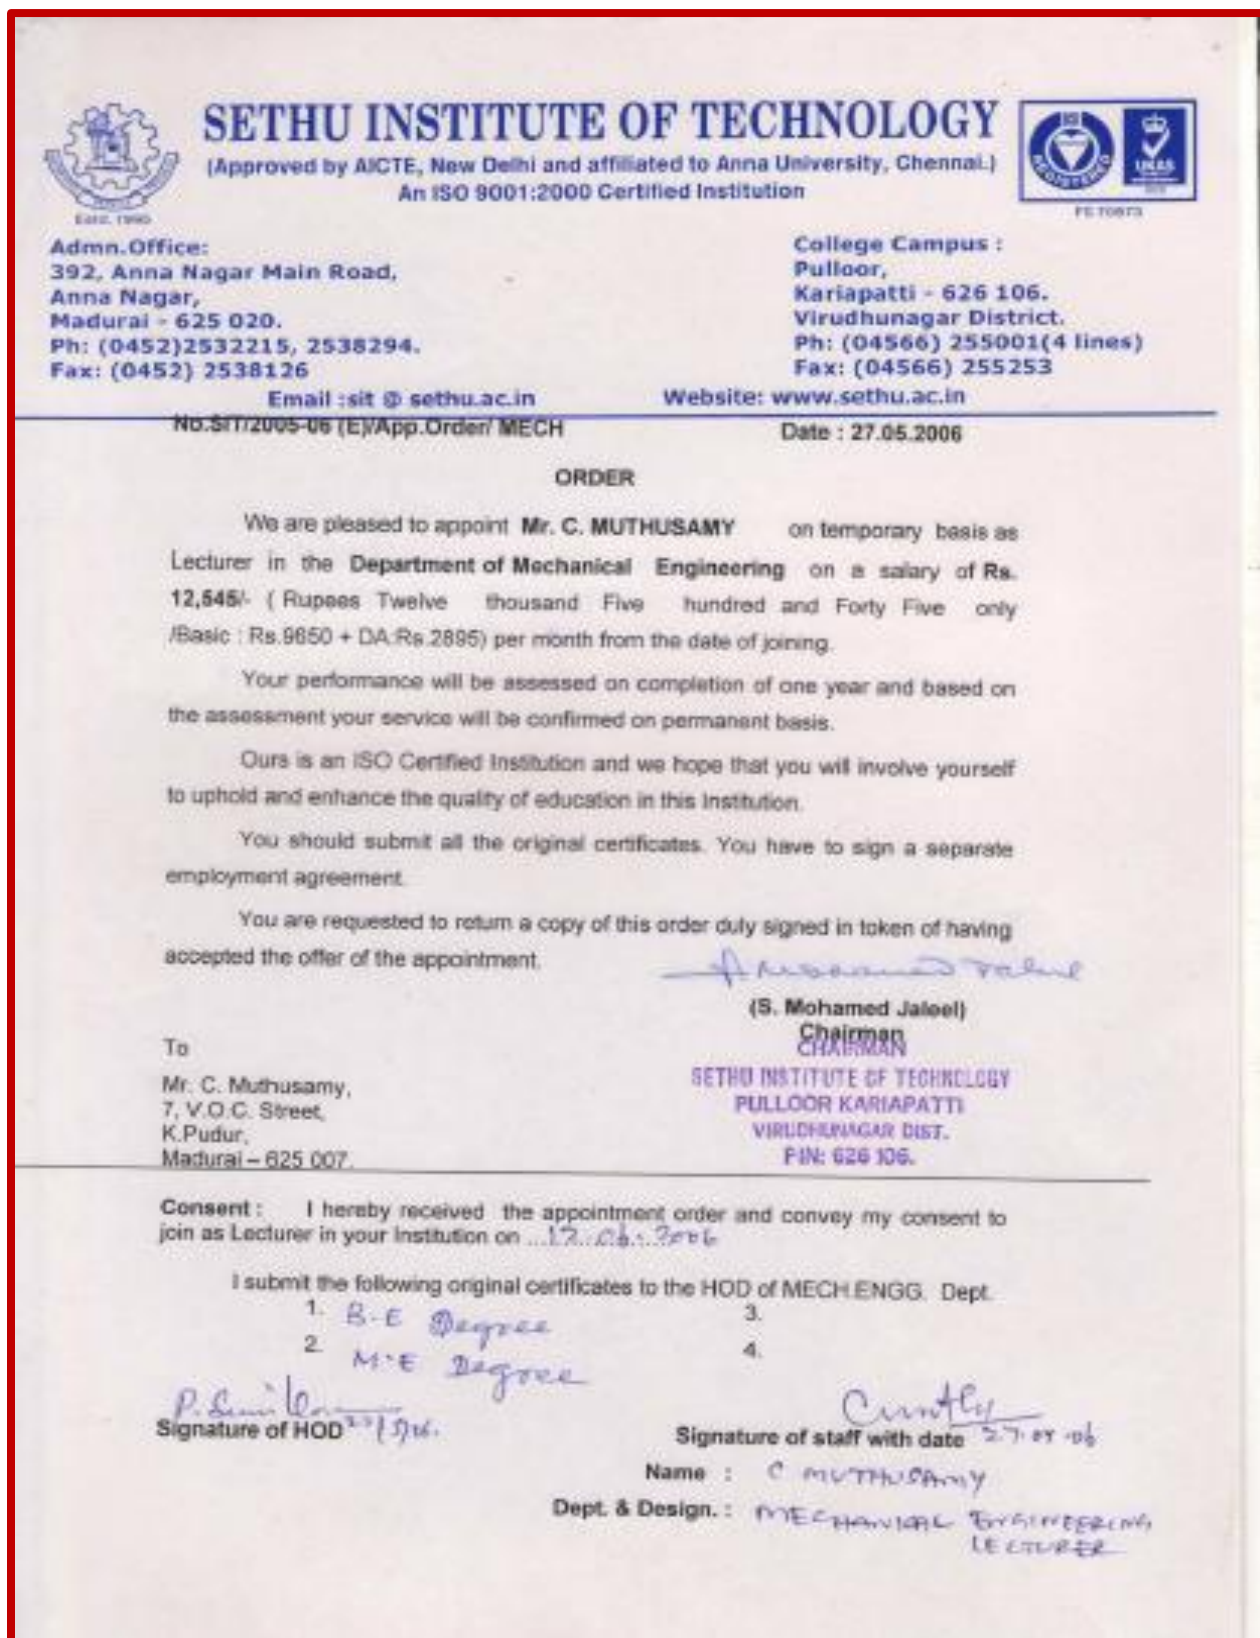 SETHU INSTITUTE OF TECHNOLOGY
(Approved by AICTE, New Delhi and affiliated to Anna University, Chennai.)
An ISO 9001:2000 Certified Institution
Estd. 1995
REGISTERED
UKAS
FS 70873
Admn.Office:
392, Anna Nagar Main Road,
Anna Nagar,
Madurai - 625 020.
Ph: (0452)2532215, 2538294.
Fax: (0452) 2538126
College Campus :
Pulloor,
Kariapatti - 626 106.
Virudhunagar District.
Ph: (04566) 255001(4 lines)
Fax: (04566) 255253
Email :sit @ sethu.ac.in Website: www.sethu.ac.in
No.SIT/2005-06 (E)/App.Order/ MECH Date : 27.05.2006
ORDER
We are pleased to appoint Mr. C. MUTHUSAMY on temporary basis as
Lecturer in the Department of Mechanical Engineering on a salary of Rs.
12,545/- ( Rupees Twelve thousand Five hundred and Forty Five only
/Basic : Rs.9650 + DA:Rs.2895) per month from the date of joining.
Your performance will be assessed on completion of one year and based on
the assessment your service will be confirmed on permanent basis.
Ours is an ISO Certified Institution and we hope that you will involve yourself
to uphold and enhance the quality of education in this Institution.
You should submit all the original certificates. You have to sign a separate
employment agreement.
You are requested to return a copy of this order duly signed in token of having
accepted the offer of the appointment.
(S. Mohamed Jaleel)
Chairman
CHAIRMAN
SETHU INSTITUTE OF TECHNOLOGY
PULLOOR KARIAPATTI
VIRUDHUNAGAR DIST.
PIN: 626 106.
To
Mr. C. Muthusamy,
7, V.O.C. Street,
K.Pudur,
Madurai – 625 007.
Consent : I hereby received the appointment order and convey my consent to
join as Lecturer in your Institution on ...12.06.2006
I submit the following original certificates to the HOD of MECH.ENGG. Dept.
1. B.E Degree 3.
2. M.E Degree 4.
Signature of HOD
Signature of staff with date 27.05.06
Name : C MUTHUSAMY
Dept. & Design. : MECHANICAL ENGINEERING
LECTURER